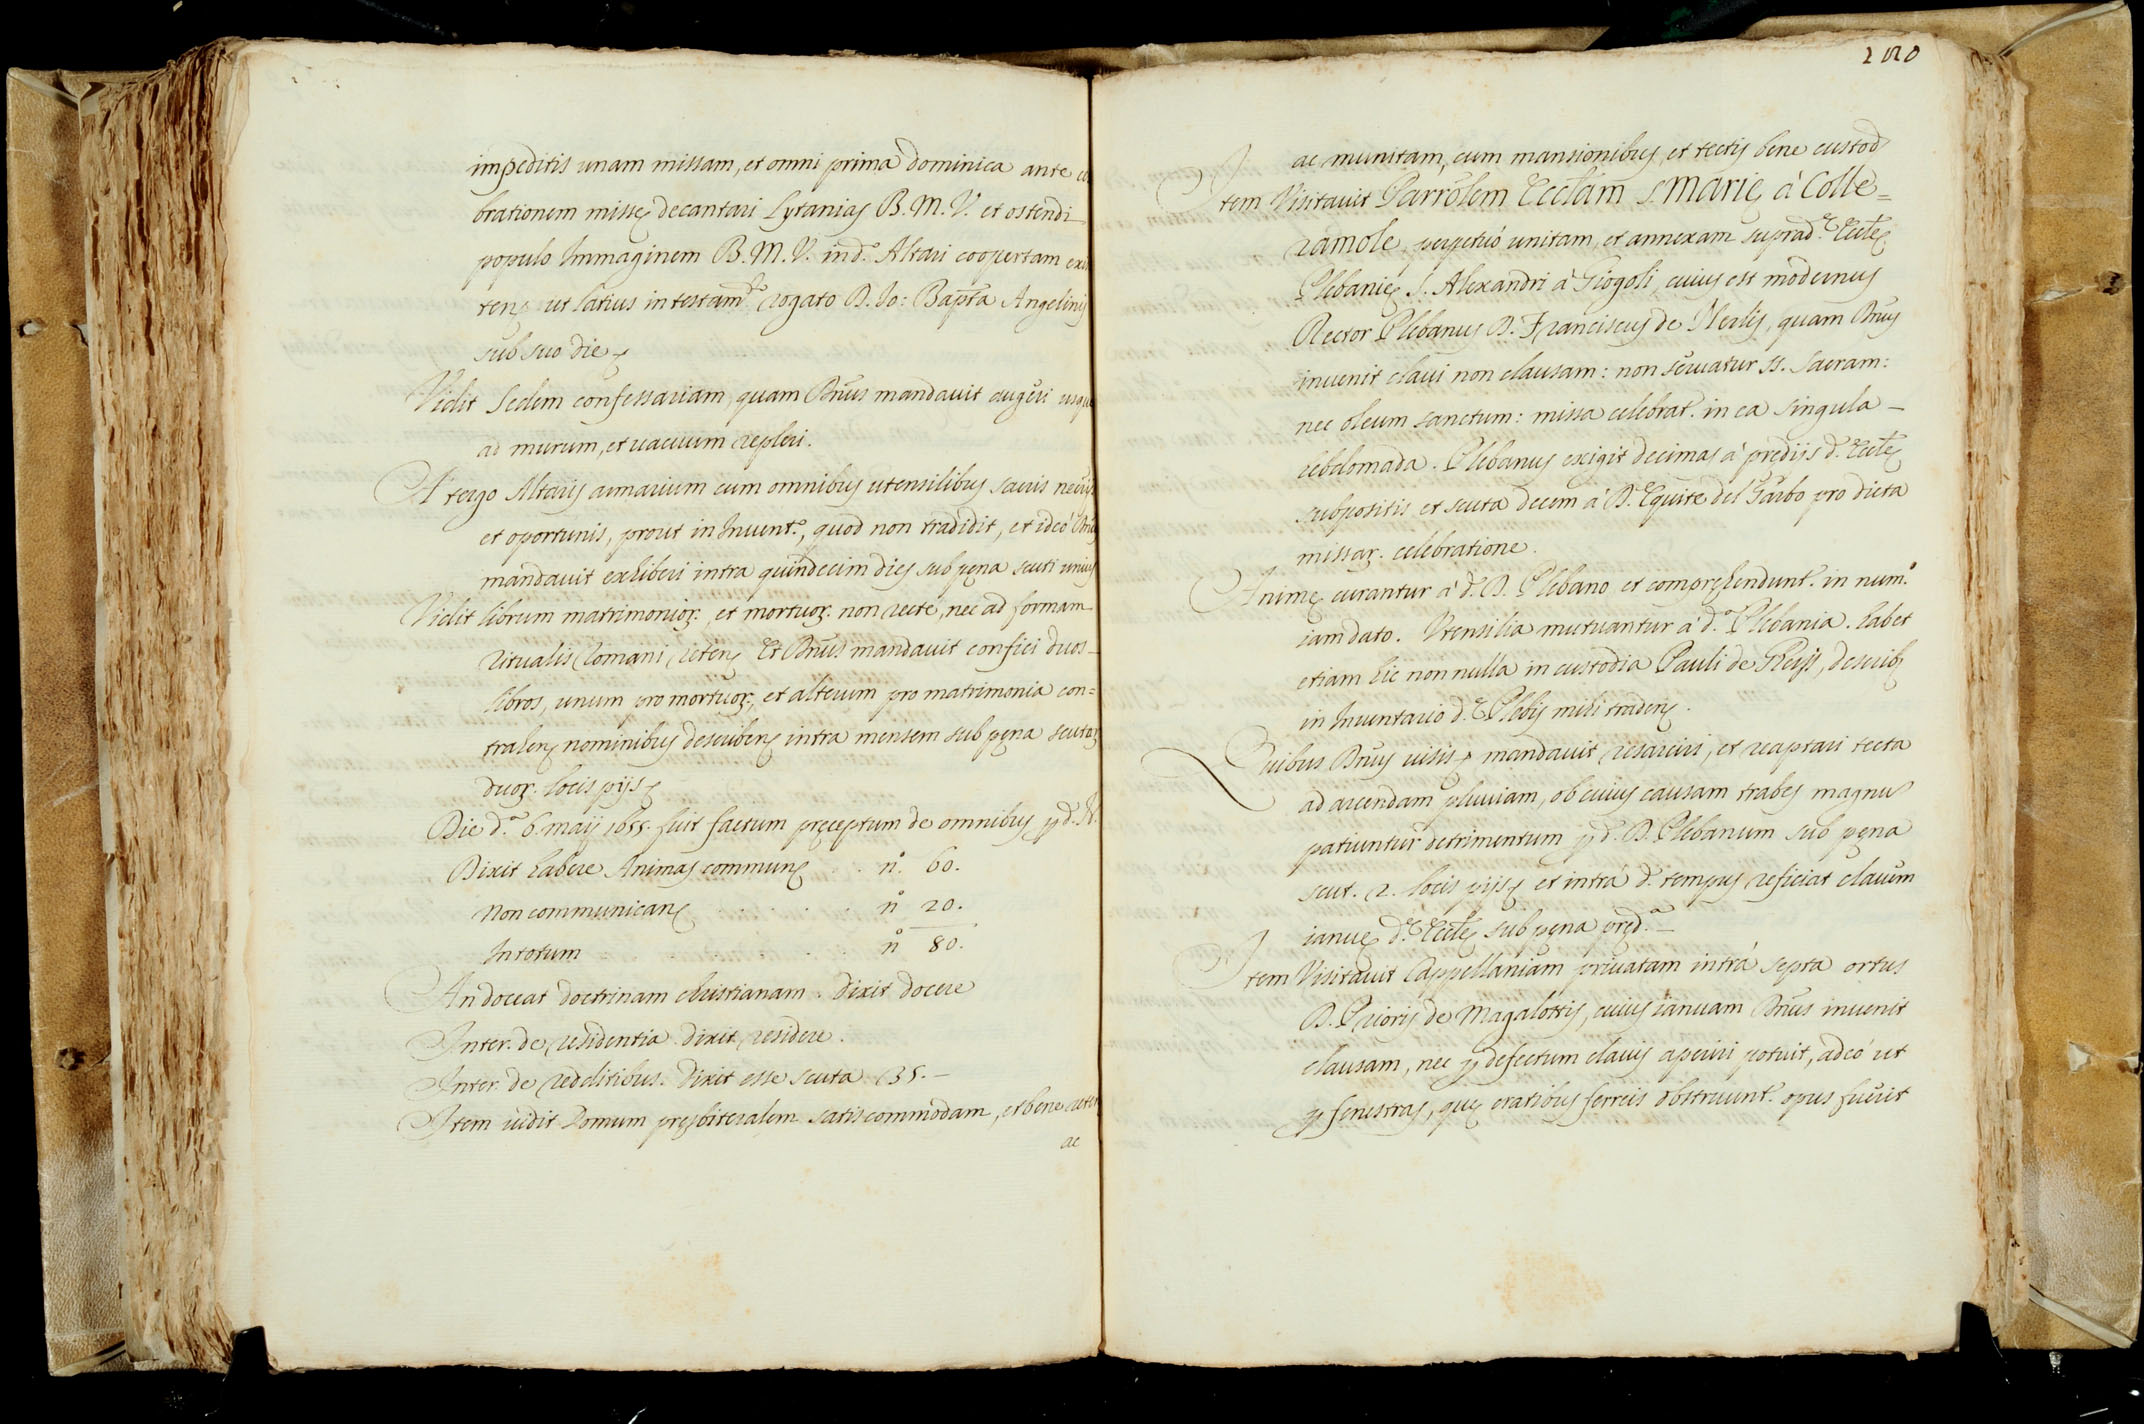 impeditis unam missam, et omni prima dominica ante
brationem missę decantari Lytanias B. M. V. et ostendi
populo Immaginem B. M. V. in d.º Altari coopertam
tenς ut latius in testam.to rogato D. Io: Bapta Angelinis
sub suo die ς
Vidit Sedem confessariam, quam Dnus mandavit augeri usque
ad murum, et vacuum repleri.
A tergo Altaris armarium cum omnibus utensilibus sacris
et oportunis, prout in Invent.º, quod non tradidit, et ideò Dnus
mandavit exhiberi intra quindecim dies sub pęna scuti unius
Vidit librum matrimonioꝝ. et mortuoꝝ. non rectè, nec ad formam
ritualis Romani retenς Et Dnus mandavit confici duos
libros, unum pro mortuoꝝ., et alterum pro matrimonia con=
trahenς nominibus describenς intra mensem sub pęna scutoꝝ
duoꝝ. locis pijs ς
Die d.ª 6. maij 1655. fuit factum pręceptum de omnibus ꝑ d. N.
Dixit habere Animas communς . . n.º 60.
Non communicanς . . . . . nº 20.
In totum . . . nº 80.
An doceat doctrinam christianam. dixit docere
Inter. de residentia dixit residere.
Inter. de redditibus. dixit esse scuta 135.—
Item vidit Domum pręsbiteralem satis commodam, et bene
ac
220
ac munitam, cum mansionibus, et tectis bene custod
Item Visitavit Parrolem Ecclam S. Marię à Colle=
ramole, perpetuò unitam, et annexam suprad.ę Eccleę
Plebanię S. Alexandri à Giogoli, cuius est modernus
Rector Plebanus D. Franciscus de Nerlis, quam Dnus
invenit clavi non clausam: non servatur SS. Sacram:
nec oleum sanctum: missa celebrat. in ea singula —
hebdomada. Plebanus exigit decimas à prędijs d.ę Eccleę
suppositis et scuta decem à D. Equite del Garbo pro dicta
missaꝝ. celebratione.
Animę curantur à d. D. Plebano et compręhendunt. in num.º
iam dato. Utensilia mutuantur à d.ª Plebania. habet
etiam hic non nulla in custodia Pauli de, describς
in Inventario d.ę Plebis mihi tradenς.
Quibus Dnus visis ς mandavit resarciri, et reaptari tecta
ad arcendam pluviam, ob cuius causam trabes magnum
patiuntur detrimentum ꝑ d. D. Plebanum sub pęna
scut. 2. locis pijs ς et intrà d. tempus reficiat clavem
ianuę d.ę Eccleę sub pęna pręd.ª —
Item Visitavit Cappellaniam privatam intrà septa ortus
D. Prioris de Magalottis, cuius ianuam Dnus invenit
clausam, nec ꝑ defectum clavis aperiri potuit, adeò ut
ꝑ fenestras, quę cratibus ferreis obstruunt. opus fuerit